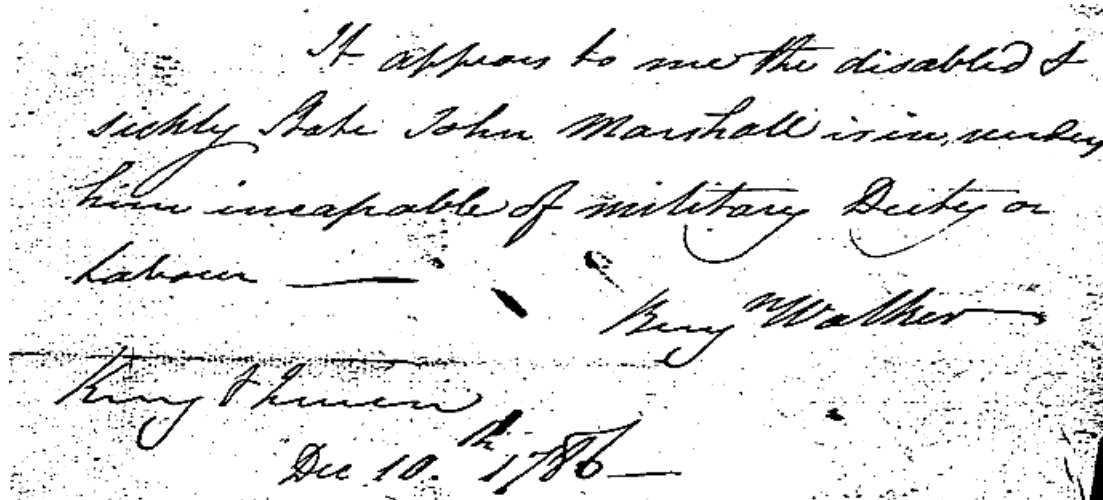 It appears to me the disabled &
sickly State John Marshall is in, renders
him incapable of military Duty or
Labour —
Benjn Walker
King & Queen
Dec 10.th 1786 —